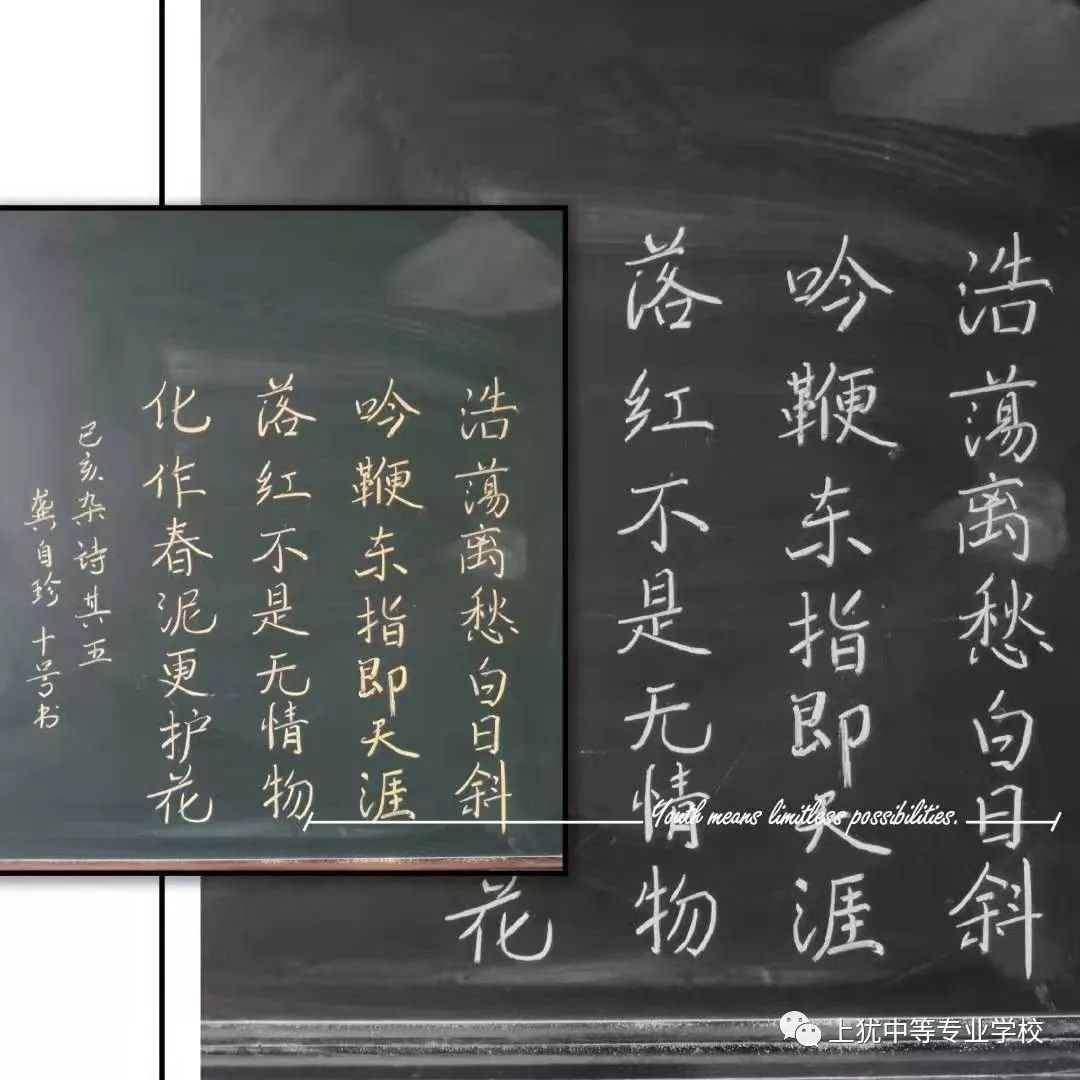 浩蕩离愁白日斜
吟鞭东指即天涯
落红不是无情物
化作春泥更护花
己亥杂诗其五
龚自珍 十号书
浩蕩离愁白日斜
吟鞭东指即天涯
落红不是无情物
花
Youth means limitless possibilities.
上犹中等专业学校